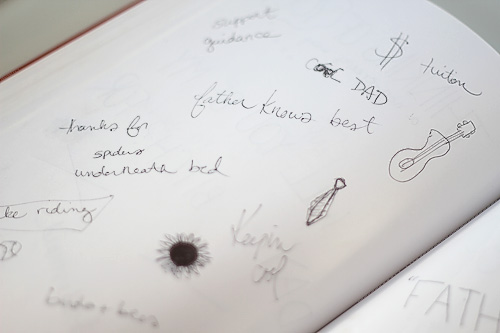 support
guidance
$ tuition
cool DAD
father knows best
thanks for
spiders
underneath bed
ke riding
Keepin
cool
birds + bees
"FATH